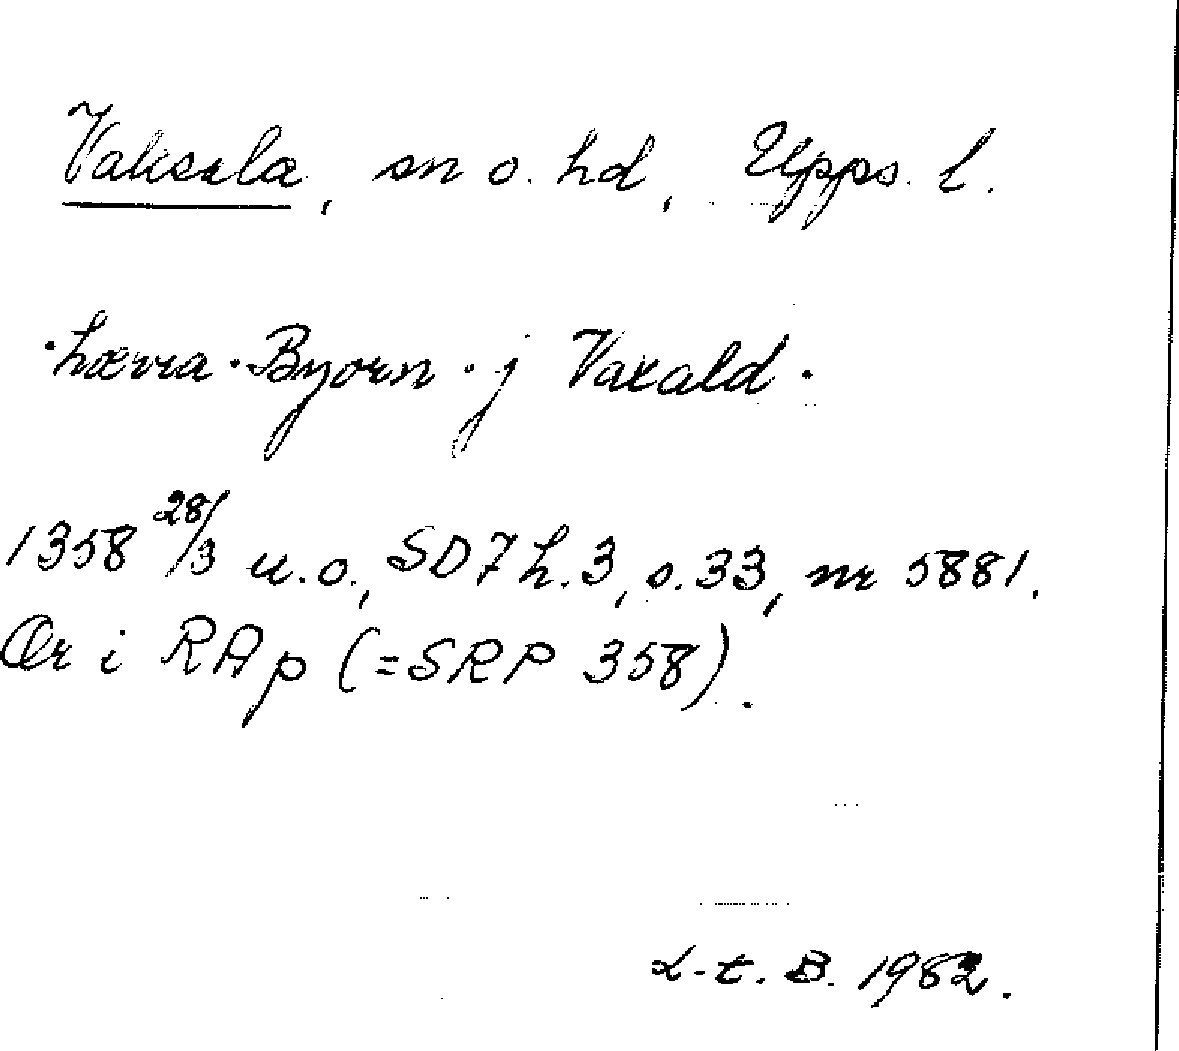 Vaksala, sn o. hd, Upps. l.
·hærra · Byorn · j Vaxald ·
1358 28/3 u.o., SD 7 h. 3, s. 33, nr 5881.
Or i RAp (=SRP 358).
L-t. B. 1982.